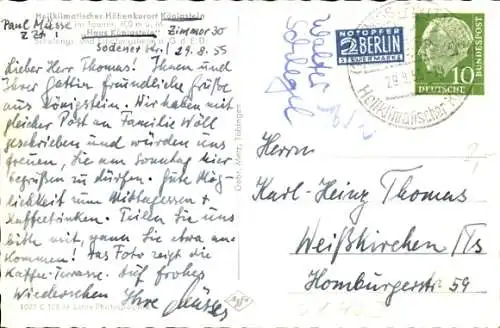 Heilklimatischer Höhenkurort Königstein
im Taunus, 400 m ü. M.
Haus Königstein
Paul Müsse
Z 291
Zimmer 30
Sodener Str. 1
29.8.55
Lieber Herr Thomas! Ihnen und
Ihrer Gattin freundliche Grüße
aus Königstein. Wir haben mit
gleicher Post an Familie Woll
geschrieben und würden uns
freuen, Sie am Sonntag hier
begrüßen zu dürfen. Gute Mög-
lichkeit zum Mittagessen &
Kaffeetrinken. Teilen Sie uns
bitte mit, wann Sie etwa an-
kommen! Das Foto zeigt die
Kaffee-Terrasse. Auf frohes
Wiedersehen Ihre Müsses
Gebr. Metz, Tübingen
Agfa
Walter
Schlegel
NOTOPFER
2 BERLIN
STEUERMARKE
Heilklimatischer
10
DEUTSCHE
BUNDESPOST
Herrn
Karl-Heinz Thomas
Weißkirchen /Ts
Homburgerstr. 59